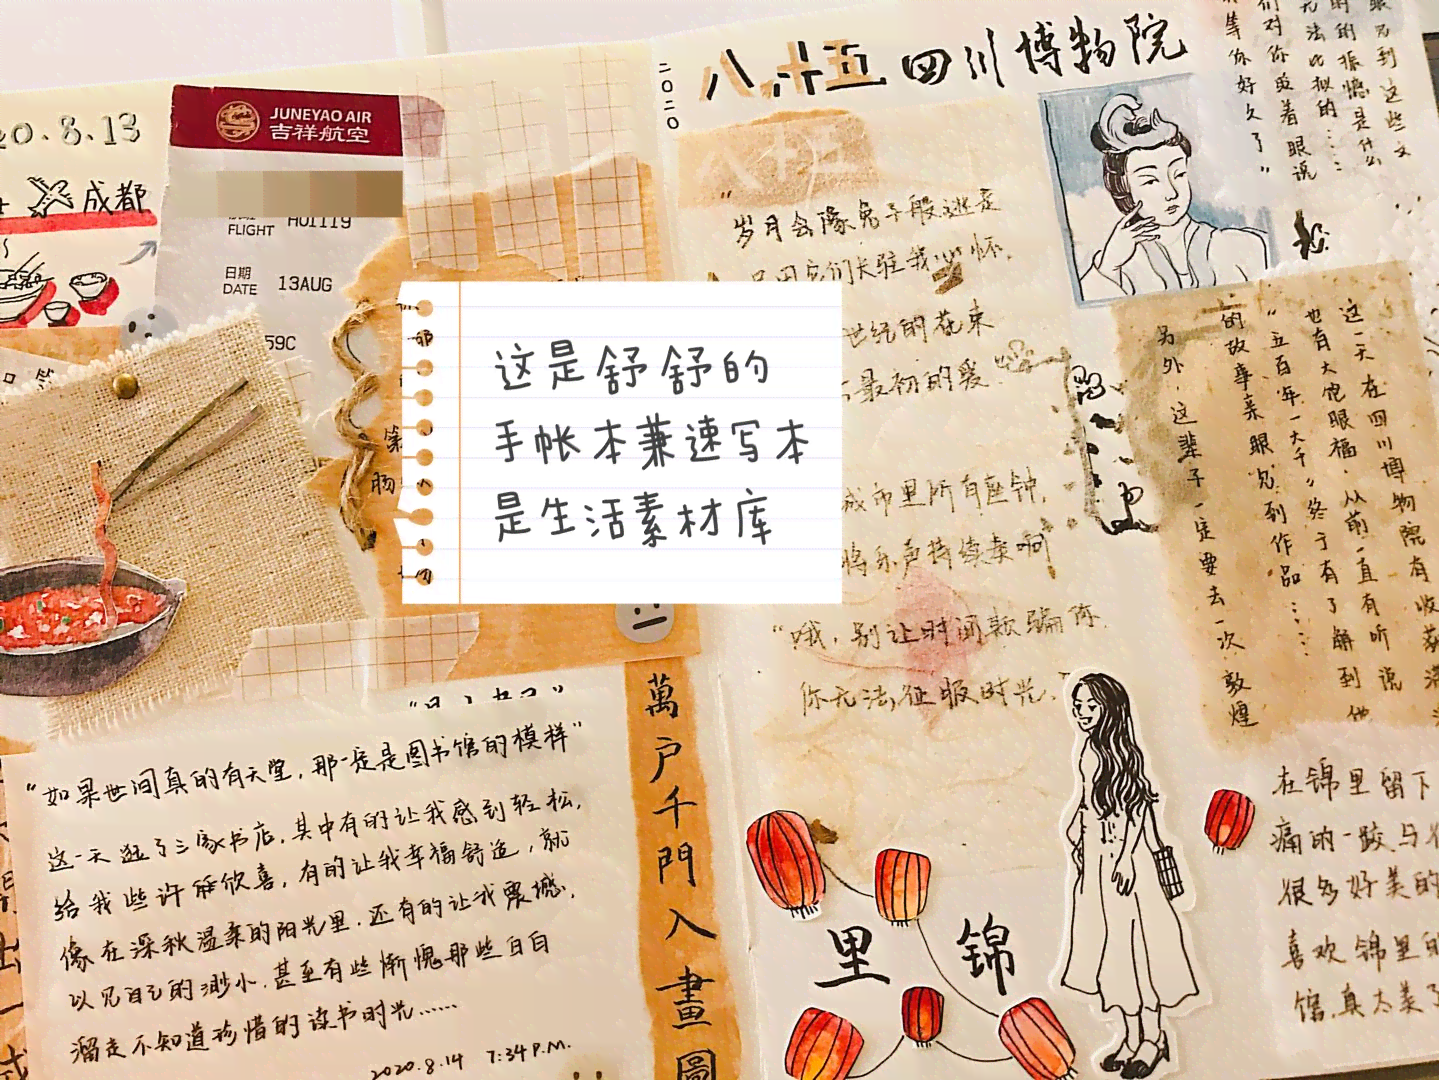 20.8.13
成都
JUNEYAO AIR
吉祥航空
FLIGHT HO1119
日期
DATE 13AUG
59C
这是舒舒的
手帐本兼速写本
是生活素材库
"如果世间真的有天堂，那一定是图书馆的模样"
这一天逛了三家书店，其中有的让我感到轻松，
给我些许的欣喜，有的让我幸福舒适，就
像在深秋温柔的阳光里，还有的让我震撼，
以见自己的渺小，甚至有些惭愧那些白白
溜走不知道珍惜的读书时光……
2020.8.14 7:34 P.M.
萬户千門入畫圖
2020
八.十五 四川博物院
"岁月会像兔子般逃走
世纪的花束
最初的爱
城市里所有座钟，
将乐声持续奏响
"哦，别让时间欺骗你
你无法征服时光."
眼见到这些文
的的振憾是什么
无法比拟的……
们对你眨着眼说
等你好久了"
这一天在四川博物院有收获满
也有大饱眼福，从前一直有听说
"五百年一大千"终于有了解到他
的故事亲眼见到作品……
另外，这辈子一定要去一次敦煌
锦里
在锦里留下
痛的一跤与
很多好美的
喜欢锦里的
馆，真太美了